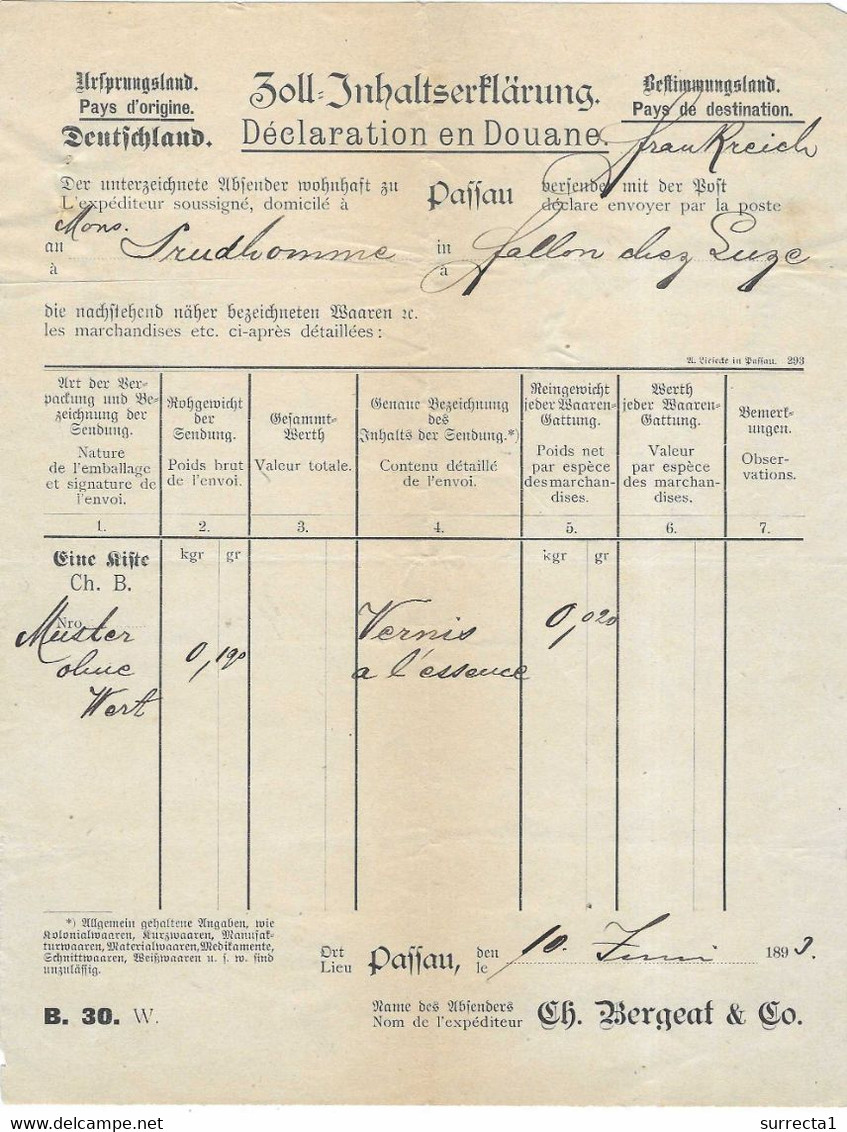 Ursprungsland.
Pays d'origine.
Deutschland.
Zoll-Inhaltserklärung.
Déclaration en Douane.
Bestimmungsland.
Pays de destination.
Frankreich
Der unterzeichnete Absender wohnhaft zu Passau versendet mit der Post
L'expéditeur soussigné, domicilé à déclare envoyer par la poste
Mons.
an Prudhomme in Fallon chez Luze
à à
die nachstehend näher bezeichneten Waaren ꝛc.
les marchandises etc. ci-après détaillées:
A. Liesecke in Passau. 293
Art der Ver-
packung und Be-
zeichnung der
Sendung.
Nature
de l'emballage
et signature de
l'envoi.
1.
Rohgewicht
der
Sendung.
Poids brut
de l'envoi.
2.
Gesammt-
Werth
Valeur totale.
3.
Genaue Bezeichnung
des
Inhalts der Sendung.*)
Contenu détaillé
de l'envoi.
4.
Reingewicht
jeder Waaren-
Gattung.
Poids net
par espèce
des marchan-
dises.
5.
Werth
jeder Waaren-
Gattung.
Valeur
par espèce
des marchan-
dises.
6.
Bemerk-
ungen.
Obser-
vations.
7.
Eine Kiste kgr gr kgr gr
Ch. B.
Nro
Muster Vernis 0,020
ohne 0,190 a l'essence
Wert
*) Allgemein gehaltene Angaben, wie
Kolonialwaaren, Kurzwaaren, Manufak-
turwaaren, Materialwaaren, Medikamente,
Schnittwaaren, Weißwaaren u. s. w. sind
unzulässig.
Ort Passau, den 10. Juni 1893.
Lieu le
B. 30. W.
Name des Absenders
Nom de l'expéditeur
Ch. Bergeat & Co.
surrecta1